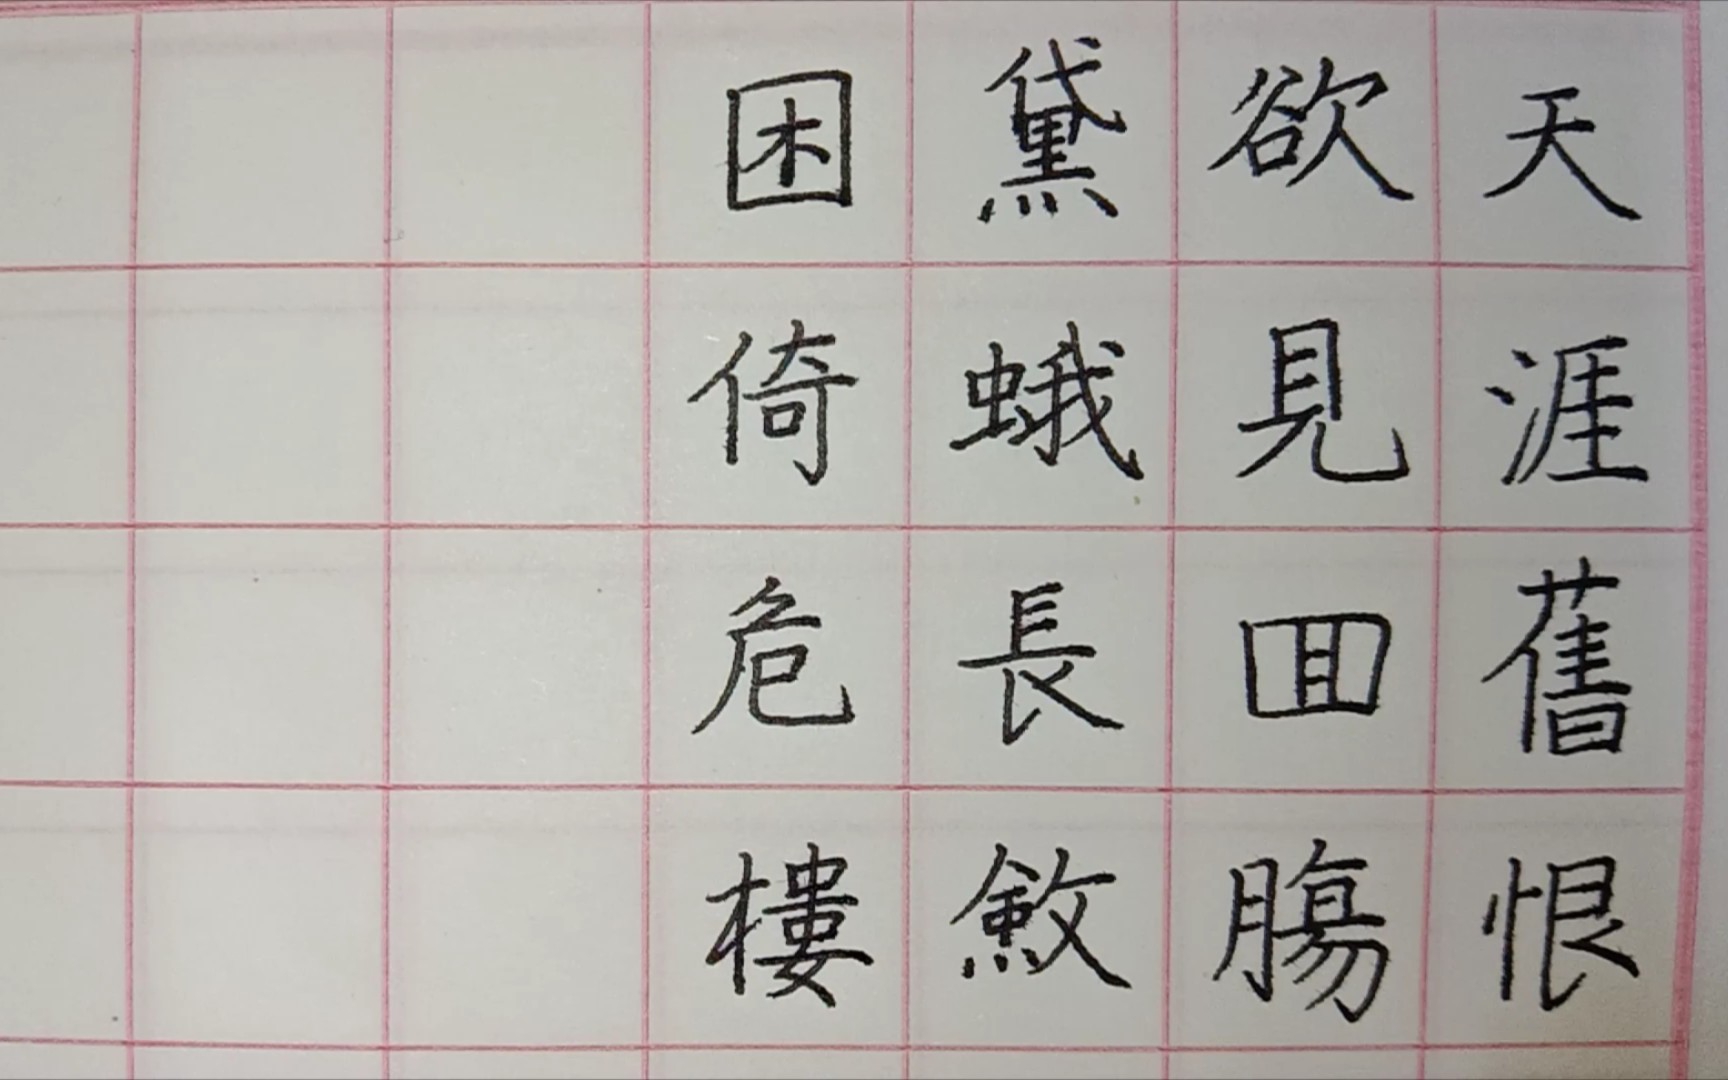 天涯舊恨
欲見囬腸
黛蛾長斂
困倚危樓